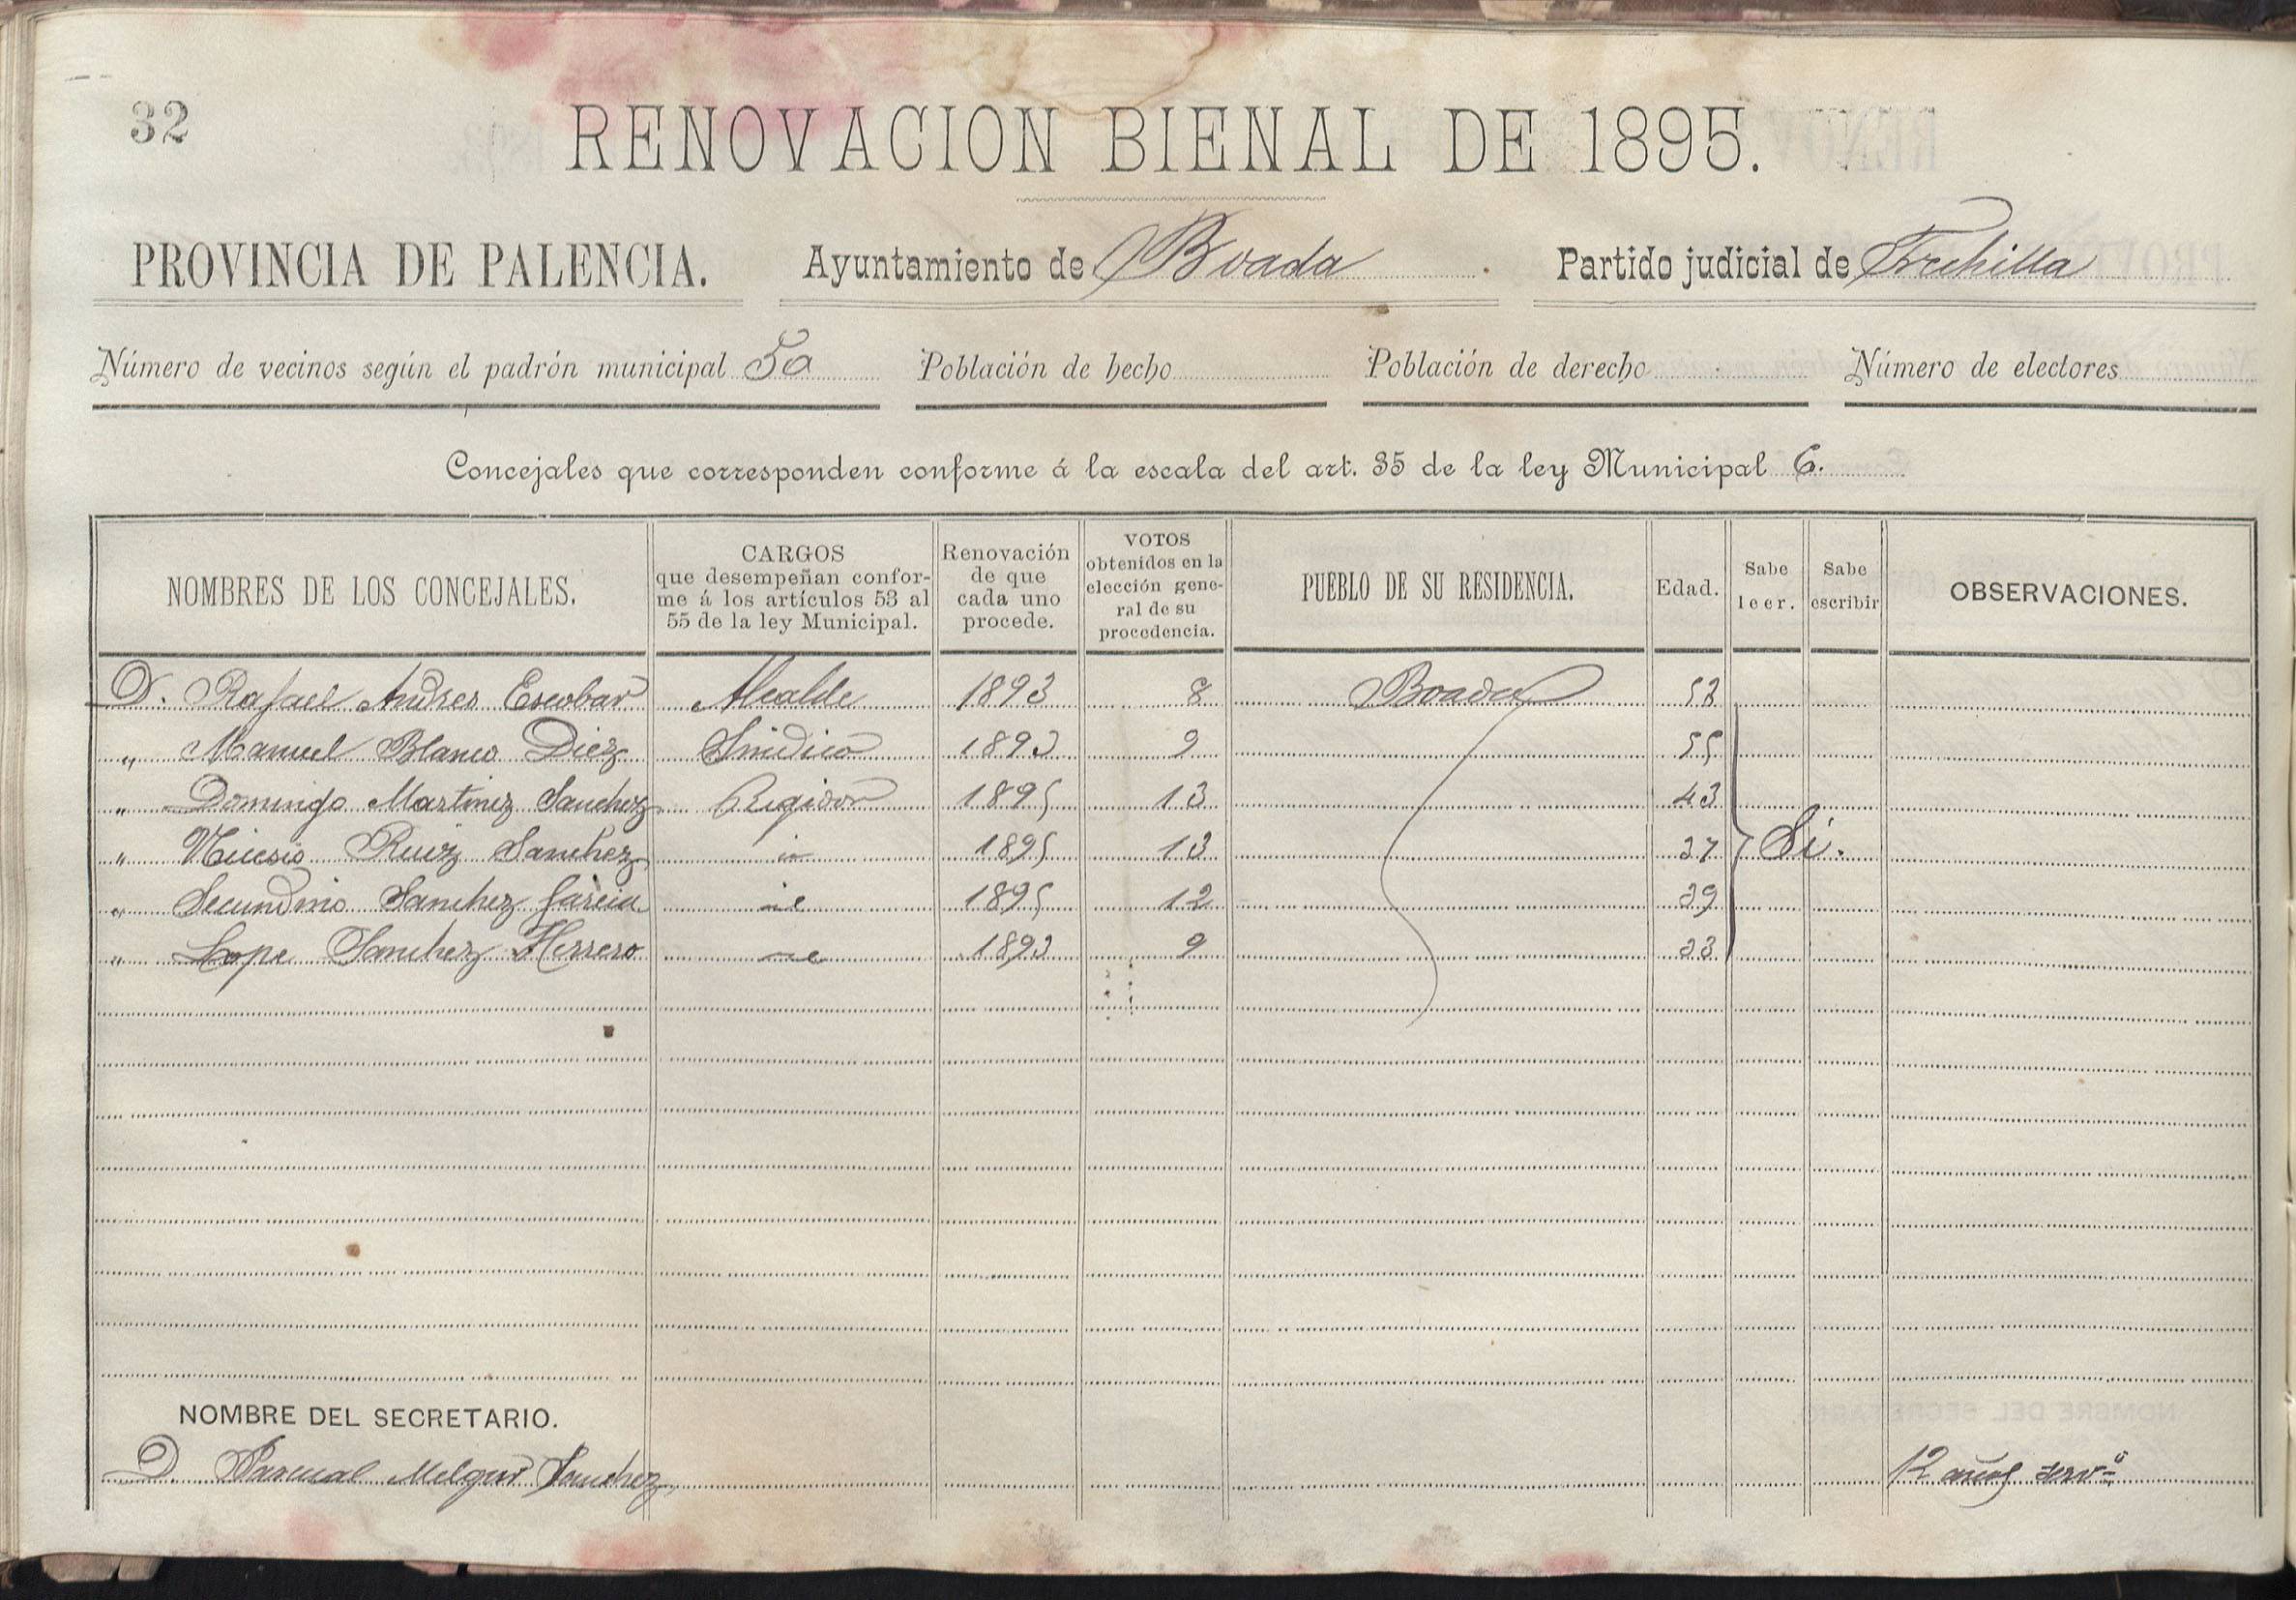 32
RENOVACION BIENAL DE 1895.
PROVINCIA DE PALENCIA. Ayuntamiento de Boada. Partido judicial de Frechilla
Número de vecinos según el padrón municipal 50 Población de hecho Población de derecho Número de electores
Concejales que corresponden conforme á la escala del art. 35 de la ley Municipal 6.
NOMBRES DE LOS CONCEJALES. CARGOS que desempeñan conforme á los artículos 53 al 55 de la ley Municipal. Renovación de que cada uno procede. VOTOS obtenidos en la elección general de su procedencia. PUEBLO DE SU RESIDENCIA. Edad. Sabe leer. Sabe escribir OBSERVACIONES.
D. Rafael Andres Escobar Alcalde 1893 8 Boada 52
" Manuel Blanco Diez Sindico 1893 9 55
" Domingo Martinez Sanchez Regidor 1895 13 43
" Nicesio Ruiz Sanchez id 1895 13 37 Si.
" Secundino Sanchez Garcia id 1895 12 39
" Lope Sanchez Herrero id 1893 9 33
NOMBRE DEL SECRETARIO.
D. Pascual Melgar Sanchez 12 años